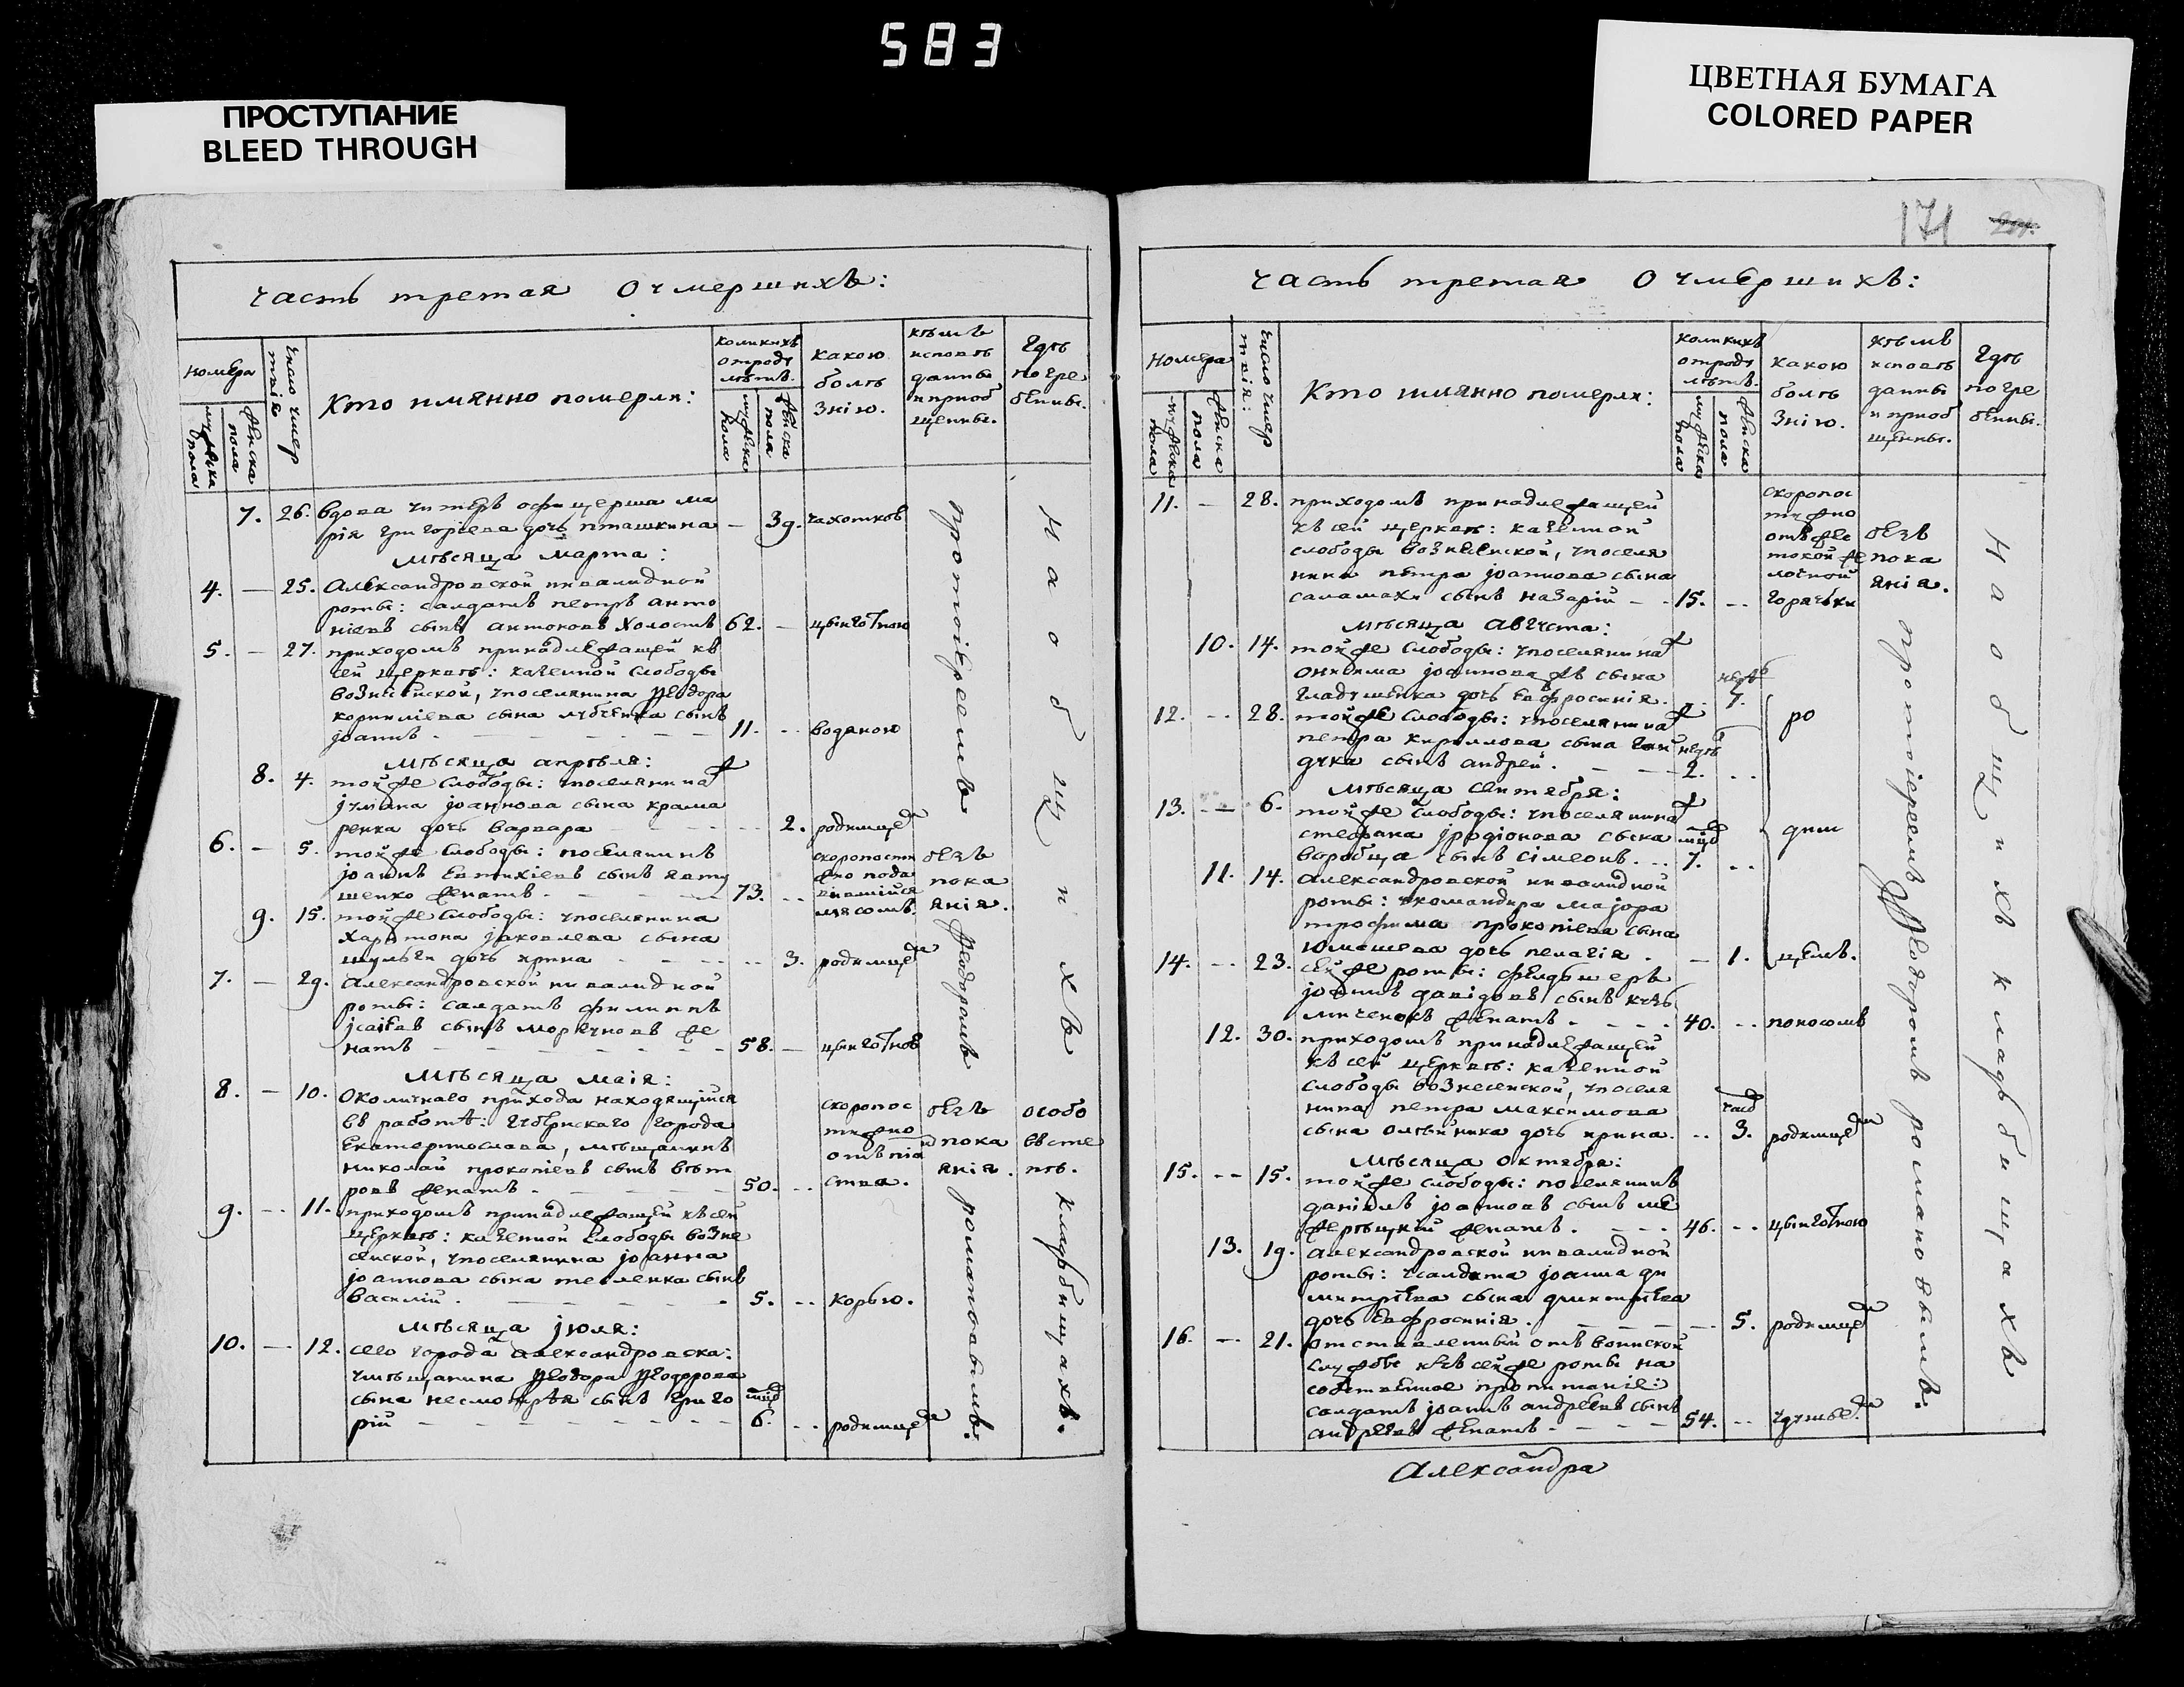 583
ПРОСТУПАНИЕ
BLEED THROUGH
ЦВЕТНАЯ БУМАГА
COLORED PAPER
171
часть третая О умершихъ:
номера
мужеска пола
женска пола
число умертвія
Кто имянно померли:
коликихъ
отроду
лѣтъ.
мужеска пола
женска пола
какою
болѣ
знію.
кѣмъ
исповѣ
даны
и приоб
щены.
Гдѣ
погре
бены.
7. 26. вдова унтеръ офицерша ма
рія григоріева дочь пташкина — 39. чахоткою
мѣсяца марта:
4. — 25. Александровской инвалидной
роты: салдатъ петръ анто
ніевъ сынъ антоновъ холостъ 62. — цынготною
5. — 27. приходомъ принадлежащей къ
сей церквѣ: казенной слободы
вознесенской, поселянина Ѳеодора
корниліева сына сынъ
іоаннъ. 11. — водяною
мѣсяца апрѣля:
8. 4. тойже слободы: поселянина
іуліана іоаннова сына крама
ренка дочь варвара 2. родимце
6. — 5. тойже слободы: поселянинъ
іоаннъ евтихіевъ сынъ явту
шенко женатъ. 73. скоропости
жно пода
вившійся
мясомъ.
безъ
пока
янія.
9. 15. тойже слободы: поселянина
харитона іаковлева сына
шульги дочь ирина 3. родимце
7. — 29. Александровской инвалидной
роты: салдатъ филиппъ
ісаіевъ сынъ же
натъ 58. — цынготною
мѣсяца маія:
8. — 10. Околичнаго прихода находящійся
въ работѣ: губернскаго города
Екатеринослава, мѣщанинъ
николай прокопіевъ сынъ вѣт
ровъ женатъ. 50. скоропос
тижно
отъ піа
нства.
безъ
пока
янія.
особо
въ сте
пѣ.
9. — 11. приходомъ принадлежащей къ сей
церквѣ: казенной слободы возне
сенской, поселянина іоанна
іоаннова сына тесленка сынъ
василій. 5. корью.
мѣсяца іюля:
10. — 12. сего города александровска:
мѣщанина Ѳеодора Ѳеодорова
сына сынъ григо
рій 6. родимце
протоіереемъ Ѳеодоромъ романовымъ.
На общихъ кладбищахъ.
часть третая О умершихъ:
номера
мужеска пола
женска пола
число умертвія:
Кто имянно померли:
коликихъ
отроду
лѣтъ.
мужеска пола
женска пола
какою
болѣ
знію.
кѣмъ
исповѣ
даны
и приоб
щены.
Гдѣ
погре
бены.
11. — 28. приходомъ принадлежащей
къ сей церквѣ: казенной
слободы вознесенской, поселя
нина петра іоаннова сына
саламахи сынъ назарій — 15. скоропос
тижно
отъ же
токой же
лочной
горячки
безъ
пока
янія.
мѣсяца августа:
10. 14. тойже слободы: поселянина
онисима іоаннова сына
гладушенка дочь евфросинія. 7.
12. 28. тойже слободы: поселянина
петра кириллова сына
сынъ андрей. 2.
мѣсяца сентября:
13. — 6. тойже слободы: поселянина
стефана іродіонова сына
воробца сынъ сімеонъ. 7.
11. 14. Александровской инвалидной
роты: командира маіора
трофима прокопіева сына
юмашева дочь пелагія. — 1.
ро
дим
цемъ.
14. 23. сейже роты: фелдшеръ
іоаннъ давідовъ сынъ
женатъ. 40. поносомъ
12. 30. приходомъ принадлежащей
къ сей церквѣ: казенной
слободы вознесенской, поселя
нина петра максимова
сына олѣйника дочь ирина. 3. родимце
мѣсяца октября:
15. — 15. тойже слободы: поселянинъ
даніилъ іоанновъ сынъ ме
жерѣцкій женатъ. 46. цынготною
13. 19. Александровской инвалидной
роты: салдата іоанна ди
митріева сына димитріева
дочь евфросинія. 5. родимце
16. — 21. отставленный отъ воинской
службы изъ сейже роты на
собственное пропитаніе:
салдатъ іоаннъ андреевъ сынъ
андреевъ женатъ. 54. удушье
протоіереемъ Ѳеодоромъ романовымъ.
На общихъ кладбищахъ
Александра